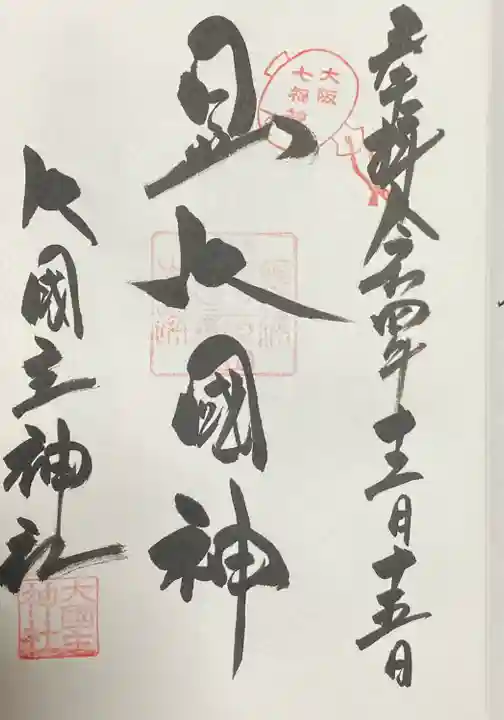 奉拝 令和四年十二月十五日
大阪
七福神
日出大國神
大國主神社
大国主
神社